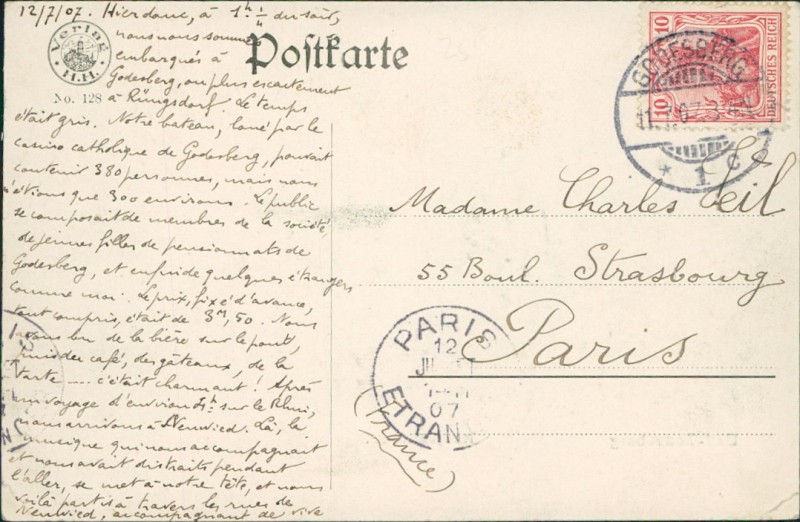 12/7/07. Hier donc, à 1h ½ du soir,
nous nous sommes
embarqués à
Godesberg, ou plus exactement
à Rüngsdorf. Le temps
était gris. Notre bateau, loué par le
casino catholique de Godesberg, pouvait
contenir 380 personnes, mais nous
n'étions que 300 environs. Le public
se composait de membres de la société,
de jeunes filles de pensionnats de
Godesberg, et enfin de quelques étrangers
comme moi. Le prix, fixé d'avance,
tout compris, était de 3M,50. Nous
avons bu de la bière sur le pont,
puis du café, des gâteaux, de la
tarte .... c'était charmant! Après
un voyage d'environ sur le Rhin,
nous arrivons à Neuwied. Là, la
musique qui nous accompagnait
et nous avait distraits pendant
l'aller, se met à notre tête, et nous
voilà partis à travers les rues de
Neuwied, accompagnant de vive
Verlag
H.H.
No. 128
Postkarte
10 10
DEUTSCHES REICH
GODESBERG
* 1 c
Madame Charles Weil
55 Boul. Strasbourg
Paris
(France)
PARIS
12
07
ETRAN